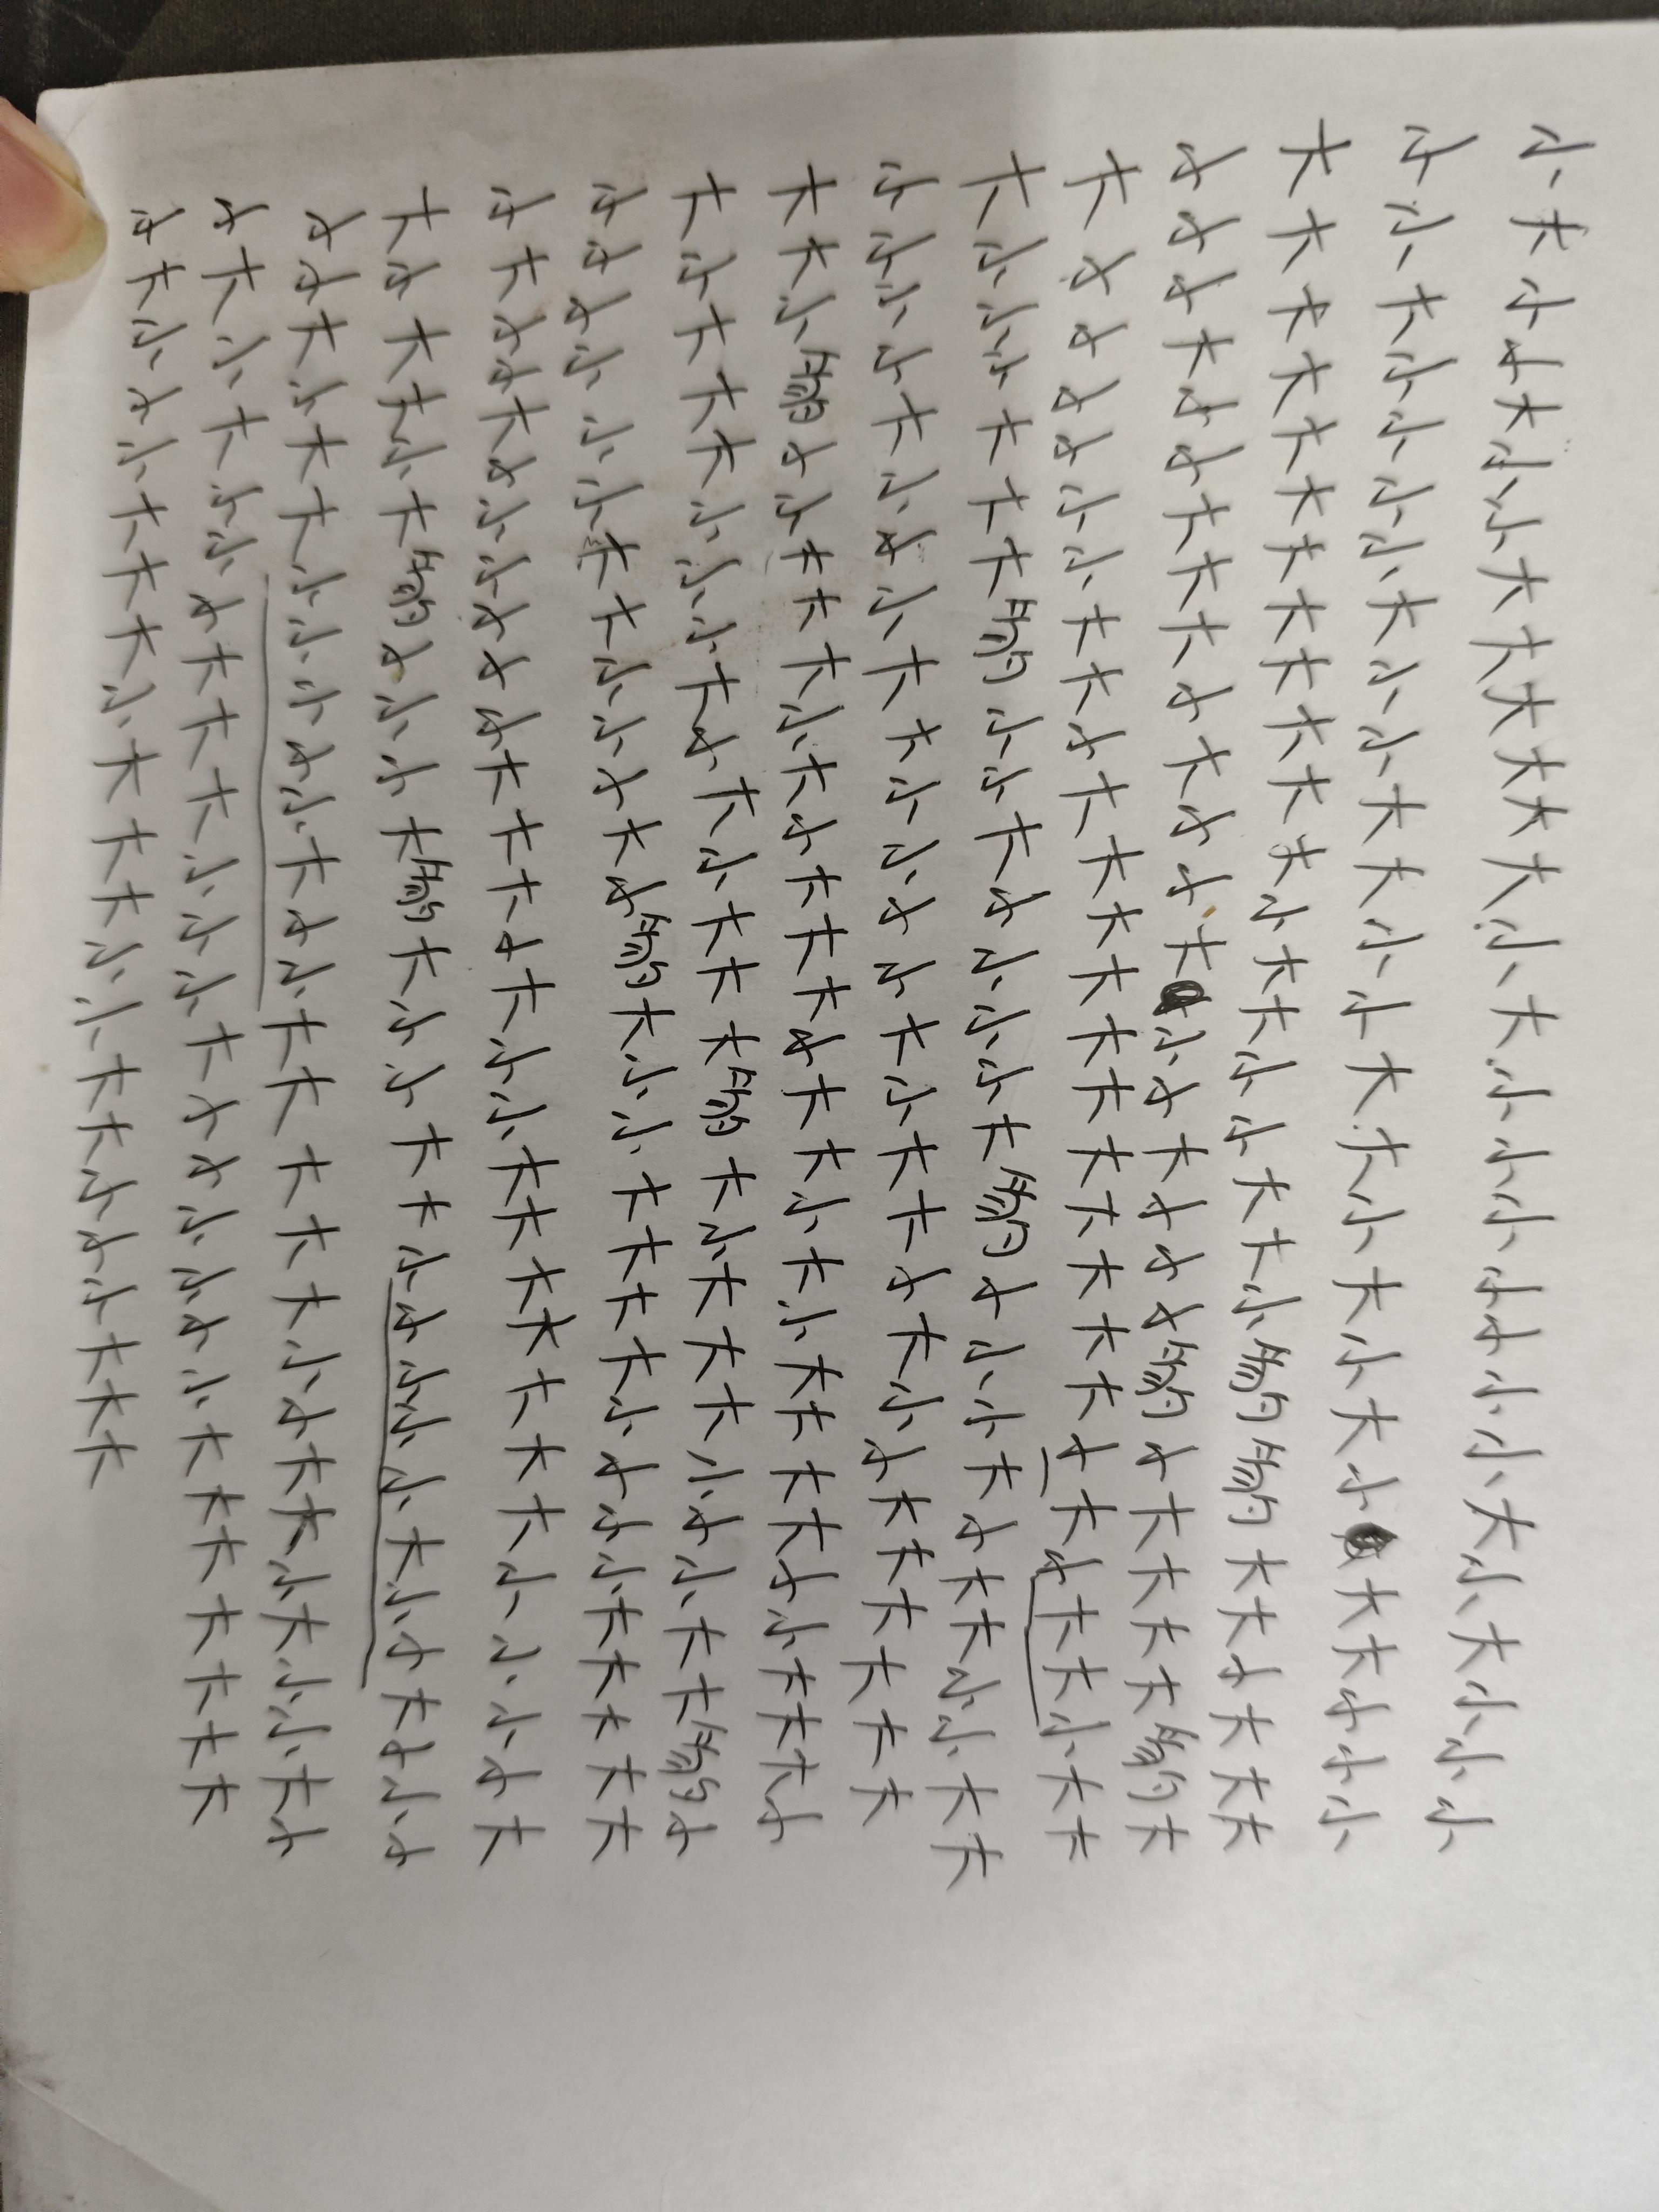 小大小小大小小大大大大大大小大小小小小小小小大小大小小小
小小大小小小小大小小大大小小大大小大小大小大大小小小
大大大大大大大大大大大大小大大小小大大小豹豹大大小大大大
小小小大小小大大大小大小小大小小大小小小豹小大大大大豹大
大小小小小小小大大小大大大大大大大大大大大小大小大大小大大
大小小小大大大豹小小大小小小小大豹小小小大小大大小小大大
小小小小大小小小大大小小小小大小大大小大小小大大大大大大
大大小豹小小大大大小大小大大大小大大小大小大大大大小小大大大小
大小大大大小小小大小大小大大大豹大小大大大小小小大大豹小
小小小小小小大大小小小大小豹大小小大大大大小小小小大大大大大
小大小小大小小小小小小大大大小大小小大大大大大大大小小小小大
大小大大小大豹小小小大豹大小小大大小小小小小大小小大小小小
小小大小大大小小小小小大小小大大大大大小小大大小大小小大小
小大小大小小小大大大小小小大小小小小小小大大大大大大大
小大小小小大大大小大大大小小大大小小小大大大